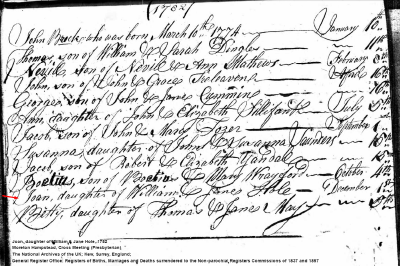 (1782)
John Brock who was born March 10th 1774 January 10th
Thomas, son of William & Sarah Dingles 11th
Nevill, son of Nevill & Ann Mathews February 3
John, son of John & Grace Treleaven
George, son of John & James Cummins
Ann, daughter of John & Elizabeth July
Jacob, son of John & Mary Tozer September
Susanna, daughter of John & Susanna Saunders 15th
Jacob, son of Robert & Elizabeth
Boetius, son of Boetius & Mary Wrayford October 4th
Joan, daughter of William & Jane Hole December 1st
Betty, daughter of Thomas & Jane Way
Joan, daughter of William & Jane Hole, 1782
Moreton Hampstead, Cross Meeting (Presbyterian)
The National Archives of the UK; Kew, Surrey, England;
General Register Office: Registers of Births, Marriages and Deaths surrendered to the Non-parochial Registers Commissions of 1837 and 1857